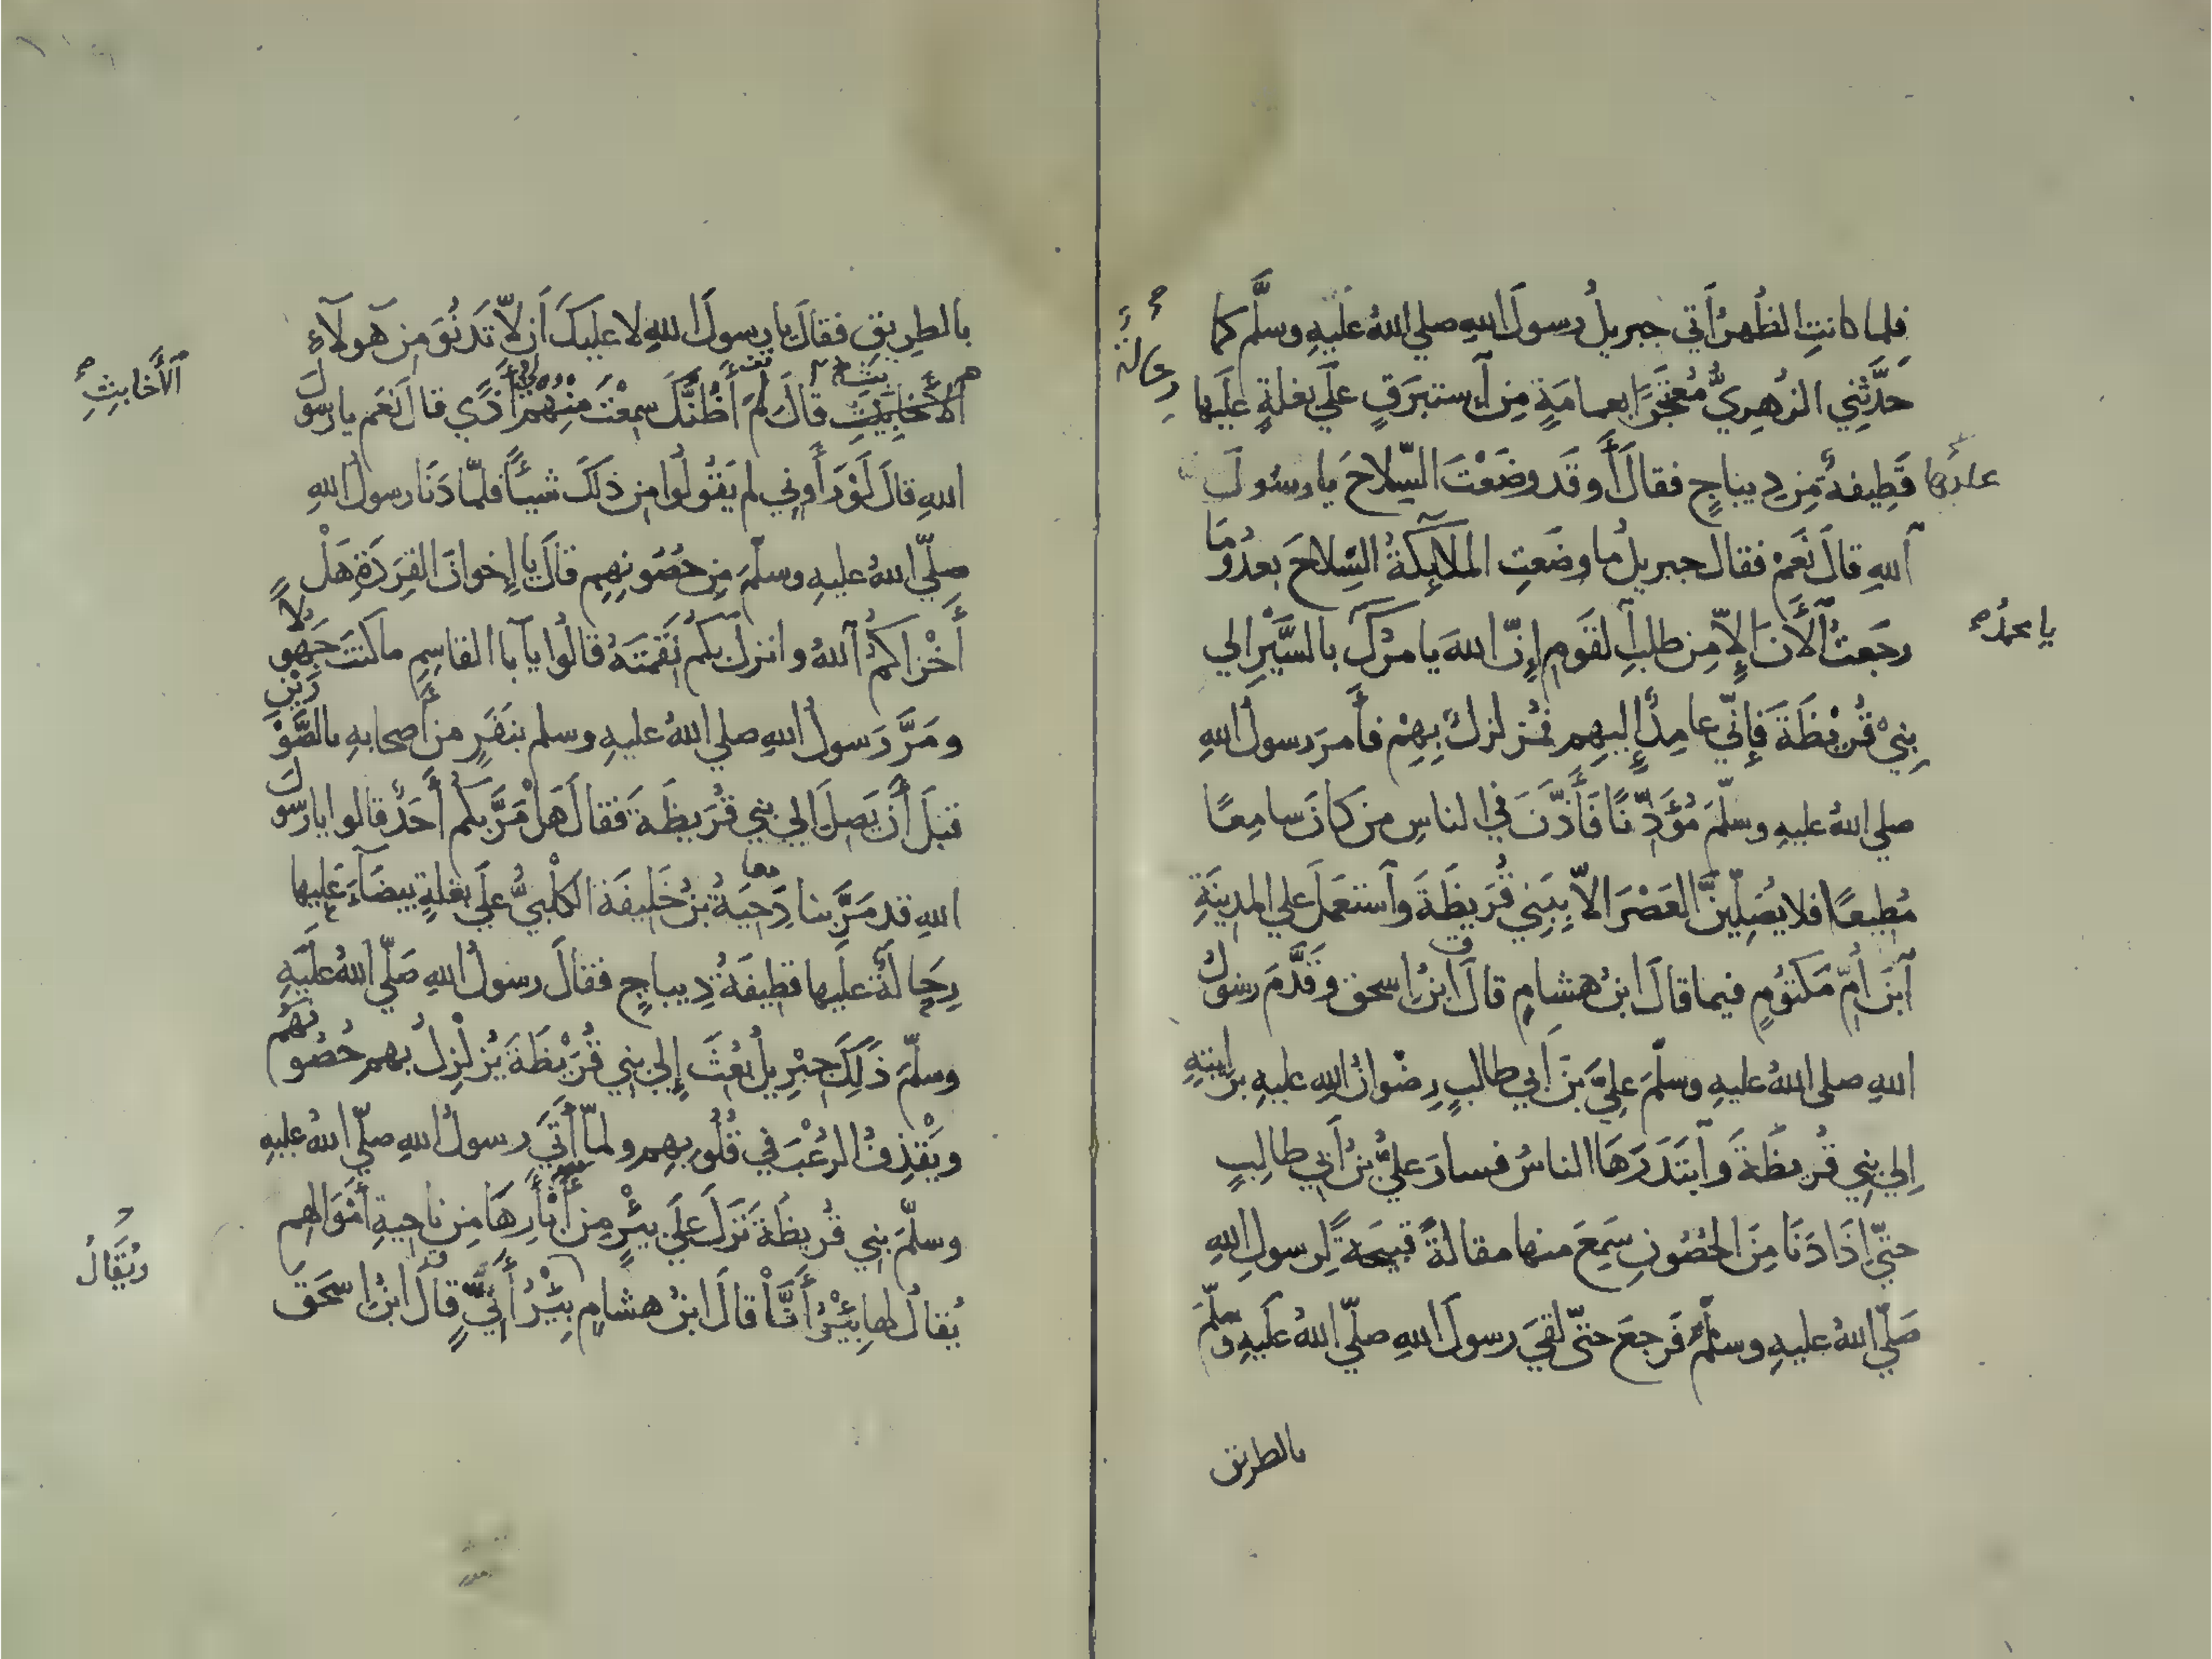 فلما كانتِ الظُهرُ أَتي جبريلُ رسولَ اللهِ صلي اللهُ عليهِ وسلَّم كما
حَدَّثَنِي الزُهرِيُّ مُعتَجِرًا بعمامَةٍ مِن اَستبرَقٍ علَي بغلةٍ علَيها
رحالةٌ
قَطِيفةٌ مِن دِيباجٍ فقالَ أَوقَد وضَعْتَ السِّلاحَ يا رسُولَ
عليها
اَللهِ قالَ نَعَمْ فقال جبريلُ ما وضَعَتِ الملآئِكَةُ السِّلاحَ بعدُ وَمَا
رجَعتُ اَلأَنَ إِلاّ مِن طلبِ اَلقَومِ إِنّ اللهَ يامرُكَ بالسَّيْرِ الي
يا محمدُ
بنِي قُرَيْظَةَ فَإِنّي عامِدٌ إِليهِم فمُزلزِلٌ بِهِمْ فأَمرَ رسولُ اللهِ
صلي اللهُ عليهِ وسلّمَ مُؤَذِّنًا فَأَذّنَ في الناسِ مَن كانَ سامِعًا
مُطِيعًا فلا يُصَلِّينَّ العَصْرَ الاّ بِبَنِي قُرَيظَةَ وَاَستعمَلَ علي المدِينَةِ
اَبنَ اُمِّ مَكتوُمٍ فيما قالَ ابنُ هشامٍ قالَ ابنُ اسحق وقَدَّمَ رسُولُ
اللهِ صلي اللهُ عليهِ وسلّمَ عليَّ بنَ اَبي طالبٍ رِضْوانُ اللهِ عليهِ برايتهِ
اِلي بنِي قُريظَةَ واَبتَدَرَهَا الناسُ فسارَ عليُّ بنُ أَبي طالِبٍ
حتّي اِذَا دَنَا مِنَ الحُصُونِ سَمِعَ منها مقالةً قبيحَةً لِرسولِ اللهِ
صَلّي اللهُ عليهِ وسلّمَ فَرجعَ حتّي لقِيَ رسولَ اللهِ صلّي اللهُ علَيهِ وسلّمَ
بالطريق
بالطرِيقِ فقالَ يا رسولَ اللهِ لا عليكَ اَن لاّ تَدنُوَ مِن هَولآءِ
اَلأَخابِيثِ قالَ لِمَ أَظُنُّكَ سمِعْتَ مِنْهُم لِي أَذًي قالَ نَعَم يا رسولَ
اَلأَخابِثِ
اللهِ قالَ لَوْ رَأَوني لم يَقُولُوا مِن ذلكَ شيئًا فلمّا دَنَا رسولُ اللهِ
صلّي اللهُ عليهِ وسلّمَ مِن حُصُونِهِم قالَ يا إِخوانَ القِرَدَةِ هَلْ
أَخْزاكمُ اَللهُ وانزلَ بكم نَقمَتَهُ قالُوا يآ بَا القاسِمِ ما كنتَ جَهُولاً
ومَرَّ رَسولُ اللهِ صلي اللهُ عليهِ وسلم بنَفَرٍ مِن أَصحابهِ بالصَّوْرَيْنِ
قبلَ أَن يَصِلَ الي بنِي قُرَيظَةَ فقالَ هَل مَرَّ بكم أَحَدٌ قالوا يا رسولَ
اللهِ قد مَرَّ بنا دِحيَةُ بنُ خَليفَة الكَلْبيُّ علَي بغلةٍ بيضَآءَ عَليها
معا
رِحَالَةٌ علَيها قطِيفَةُ دِيباجٍ فقالَ رسولُ اللهِ صَلّي اللهُ علَيهِ
وسلّمَ ذَلِكَ جبْرِيلُ بُعثَ إِلي بنِي قُرَيْظَةَ يُزلْزِلُ بهم حُصُونَهُم
ويَقْذِفُ الرُعْبَ في قُلُوبهِم ولمّا أَتَي رسولُ اللهِ صلّي اللهُ عليهِ
وسلّمَ بنِي قُريظَةَ نَزلَ علَي بئْرٍ مِن أَبْأَرِهَا مِن ناحِيةِ أَموَالهم
يُقالُ لها بِئْرُ أَنَّا قالَ ابنُ هشامٍ بِئْرُ أَنِّيَّ قالَ ابنُ اسحَقَ
ويُقَالُ